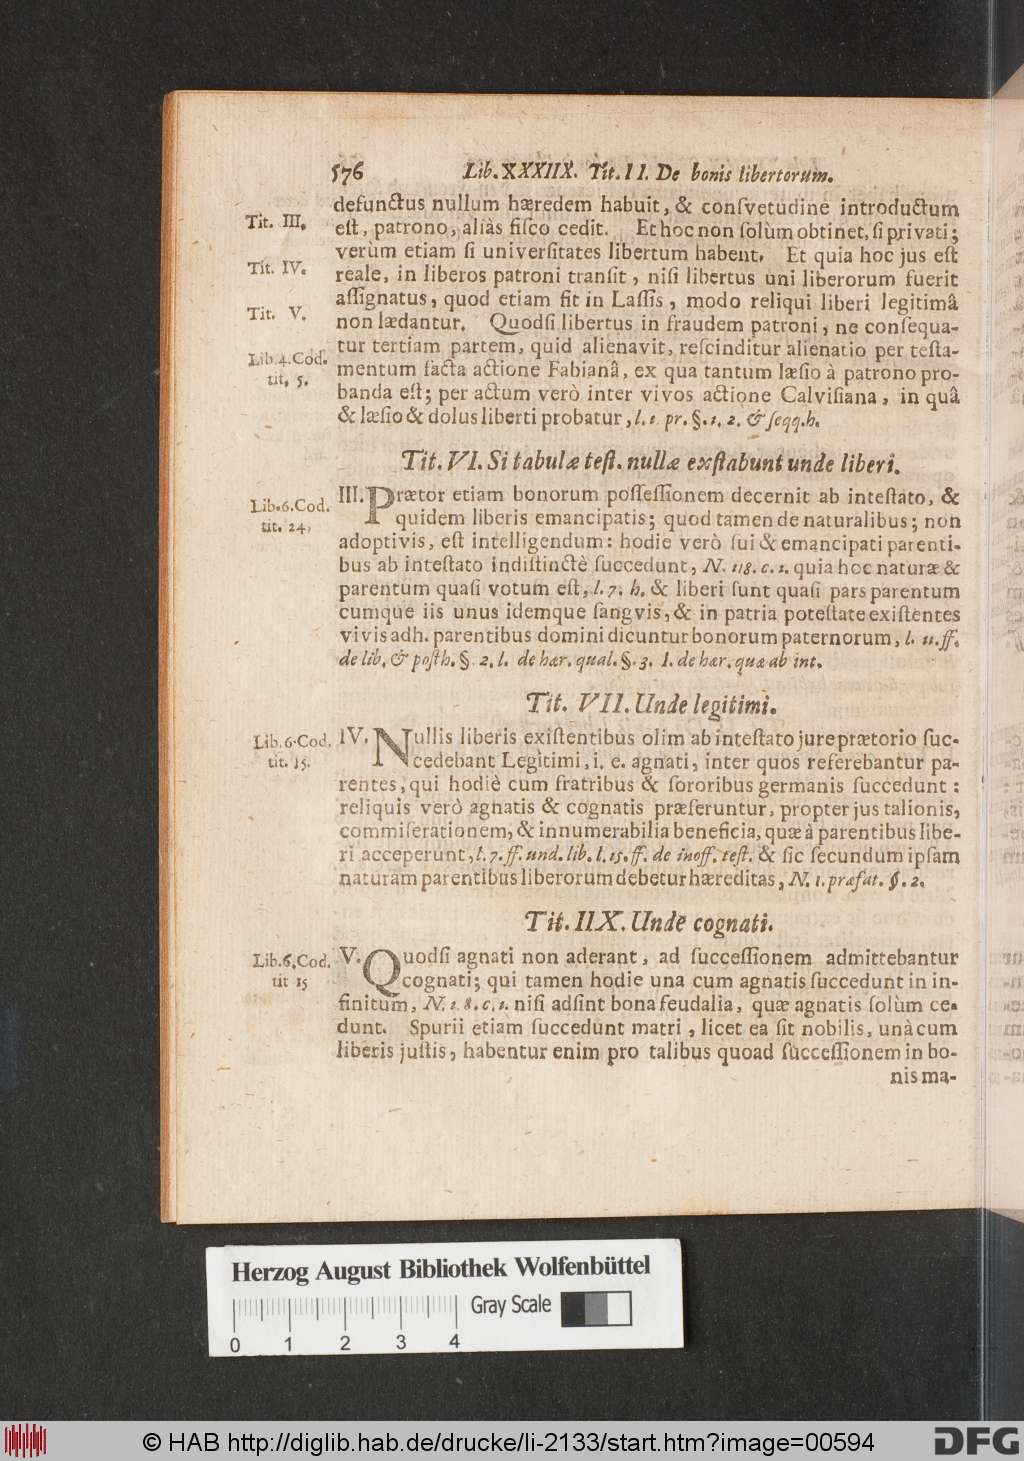 576 Lib. XXXIIX. Tit. II. De bonis libertorum.
defunctus nullum hæredem habuit, & conſvetudine introductum
Tit. III. eſt, patrono, aliàs fiſco cedit. Et hoc non ſolùm obtinet, ſi privati;
verùm etiam ſi univerſitates libertum habent. Et quia hoc jus eſt
Tit. IV. reale, in liberos patroni tranſit, niſi libertus uni liberorum fuerit
aſſignatus, quod etiam fit in Laſſis, modo reliqui liberi legitimâ
Tit. V. non lædantur. Quodſi libertus in fraudem patroni, ne conſequa-
tur tertiam partem, quid alienavit, reſcinditur alienatio per teſta-
Lib. 4. Cod. mentum facta actione Fabianâ, ex qua tantum læſio à patrono pro-
tit. 5. banda eſt; per actum verò inter vivos actione Calviſiana, in quâ
& læſio & dolus liberti probatur, l. 1. pr. §. 1. 2. & ſeqq. h.
Tit. VI. Si tabulæ teſt. nullæ exſtabunt unde liberi.
Lib. 6. Cod. III. Prætor etiam bonorum poſſeſſionem decernit ab inteſtato, &
tit. 24. quidem liberis emancipatis; quod tamen de naturalibus; non
adoptivis, eſt intelligendum: hodie verò ſui & emancipati parenti-
bus ab inteſtato indiſtinctè ſuccedunt, N. 118. c. 1. quia hoc naturæ &
parentum quaſi votum eſt, l. 7. h. & liberi ſunt quaſi pars parentum
cumque iis unus idemque ſangvis, & in patria poteſtate exiſtentes
vivis adh. parentibus domini dicuntur bonorum paternorum, l. 11. ff.
de lib. & poſth. §. 2. l. de hær. qual. §. 3. I. de hær. quæ ab int.
Tit. VII. Unde legitimi.
Lib. 6. Cod. IV. Nullis liberis exiſtentibus olim ab inteſtato jure prætorio ſuc-
tit. 15. cedebant Legitimi, i. e. agnati, inter quos referebantur pa-
rentes, qui hodiè cum fratribus & ſororibus germanis ſuccedunt:
reliquis verò agnatis & cognatis præferuntur, propter jus talionis,
commiſerationem, & innumerabilia beneficia, quæ à parentibus libe-
ri acceperunt, l. 7. ff. und. lib. l. 15. ff. de inoff. teſt. & ſic ſecundum ipſam
naturam parentibus liberorum debetur hæreditas, N. 1. præfat. §. 2.
Tit. IIX. Unde cognati.
Lib. 6. Cod. V. Quodſi agnati non aderant, ad ſucceſſionem admittebantur
tit 15 cognati; qui tamen hodie una cum agnatis ſuccedunt in in-
finitum, N. 118. c. 1. niſi adſint bona feudalia, quæ agnatis ſolùm ce-
dunt. Spurii etiam ſuccedunt matri, licet ea ſit nobilis, unà cum
liberis juſtis, habentur enim pro talibus quoad ſucceſſionem in bo-
nis ma-
Herzog August Bibliothek Wolfenbüttel
Gray Scale
0 1 2 3 4
© HAB http://diglib.hab.de/drucke/li-2133/start.htm?image=00594
DFG